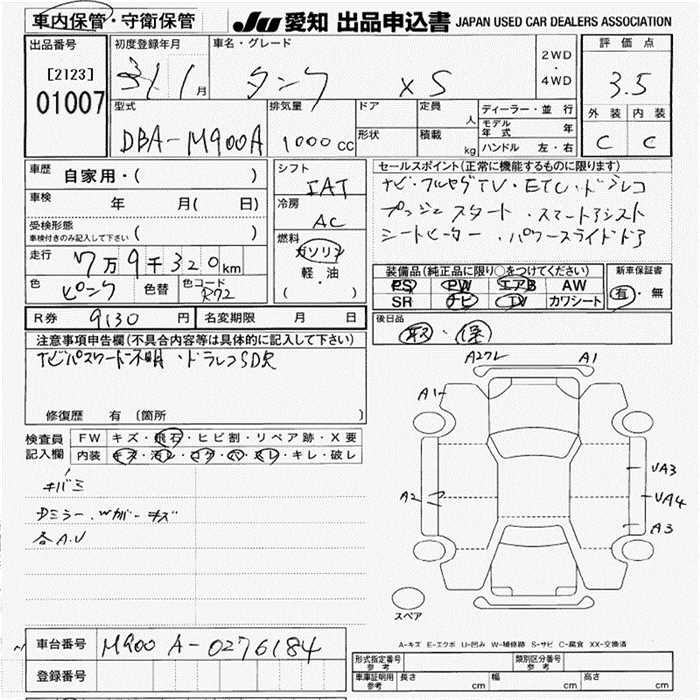 車内保管・守衛保管
JU 愛知 出品申込書 JAPAN USED CAR DEALERS ASSOCIATION
出品番号
[2123]
01007
初度登録年月
31/1月
車名・グレード
タンク XS
2WD
・
4WD
評価点
3.5
外装 内装
C C
型式
DBA-M900A
排気量
1000cc
ドア
形状
定員 人
積載 kg
ディーラー・並行
モデル年式 年
ハンドル 左・右
車歴 自家用・( )
車検 年 月( 日)
受検形態
車検付きのみ記入して下さい ( )
走行 7万9千320km
色 ピンク 色替 色コード R72
シフト
IAT
冷房
AC
燃料
ガソリン
軽・油
( )
セールスポイント(正常に機能するものに限ります)
ナビ・フルセグTV・ETC・ドラレコ
プッシュスタート・スマートアシスト
シートヒーター・パワースライドドア
装備品(純正品に限り○をつけてください)
PS PW エアB AW
SR ナビ TV カワシート
新車保証書
有・無
R券 9130円 名変期限 月 日
後日品
取・保
注意事項申告欄(不具合内容等は具体的に記入して下さい)
ナビパスワード不明・ドラレコSD欠
修復歴 有 (箇所 )
検査員
記入欄
FW キズ・飛石・ヒビ割・リペア跡・X要
内装 キズ・汚レ・コゲ・穴・スレ・キレ・破レ
キバミ
Dミラー・Wガバーキズ
各A.U
A2クレ A1
A1
A2
UA3
UA4
A3
スペア
A-キズ E-エクボ U-凹み W-補修跡 S-サビ C-腐食 XX-交換済
車台番号 M900A-0276184
登録番号
形式指定番号
参考
類別区分番号
参考
車庫証明用
参考
長さ cm 幅 cm 高さ cm